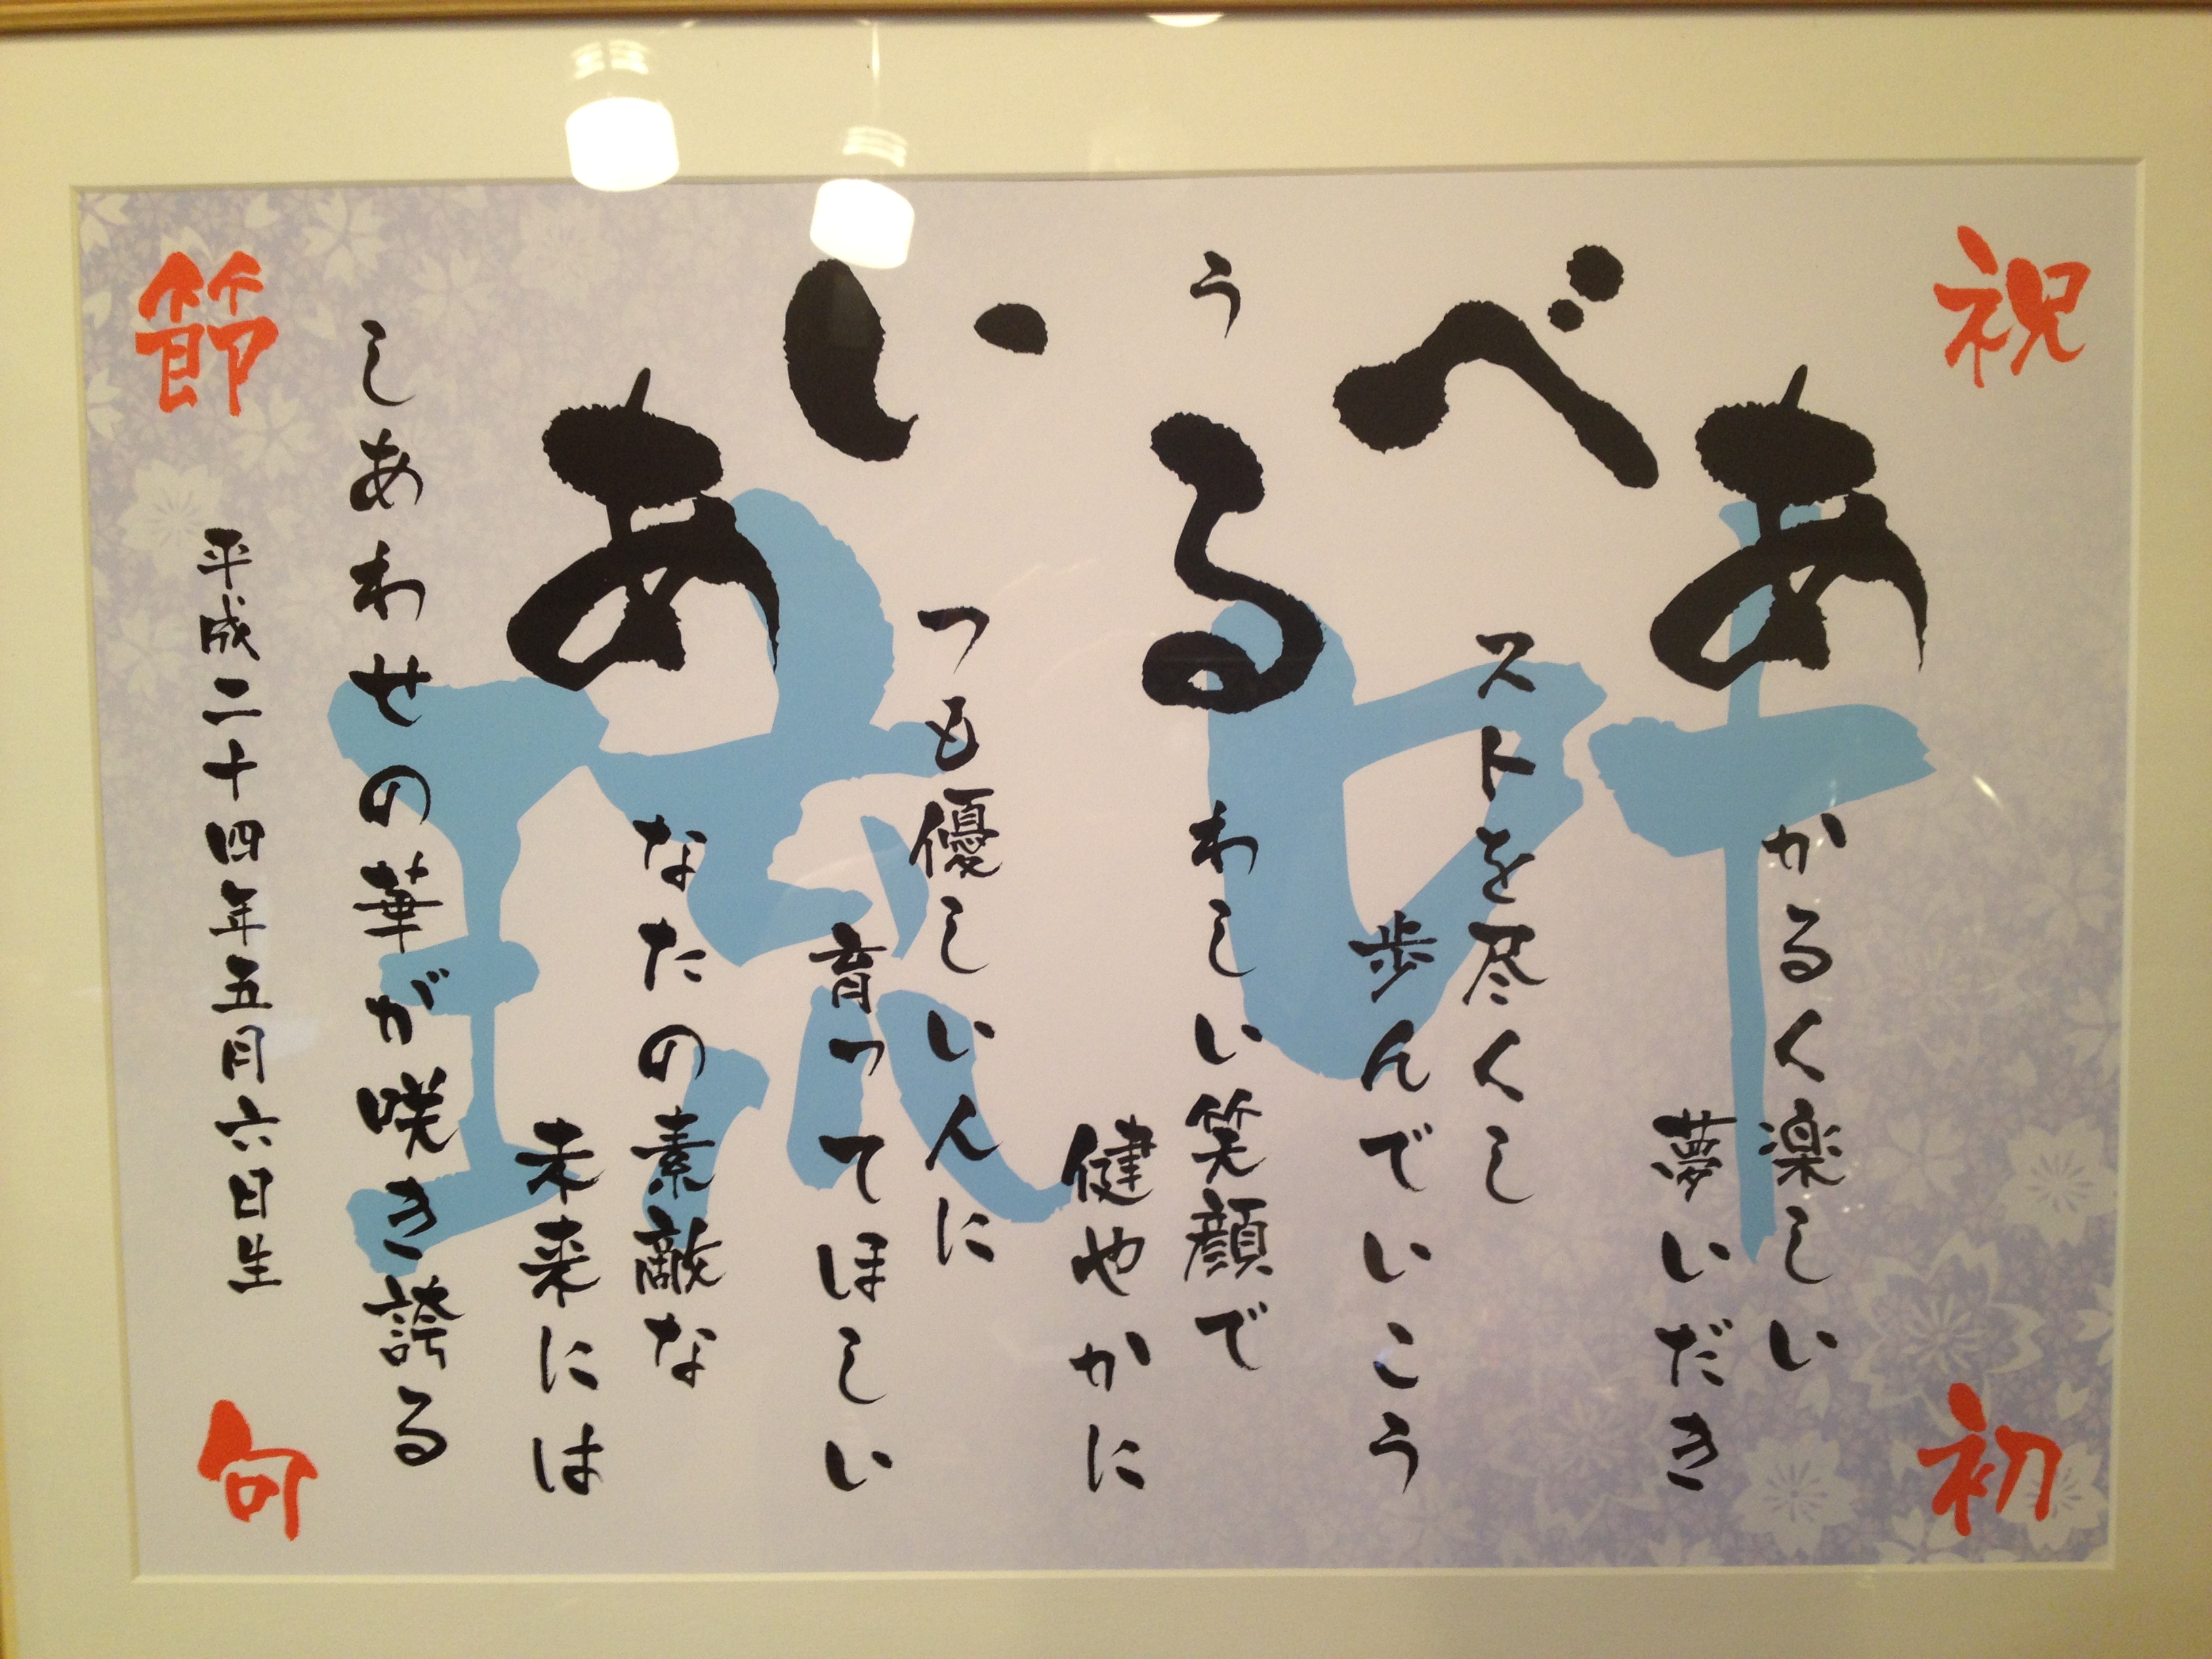 祝
初
節
句
叶琉
あかるく楽しい
夢いだき
べストを尽くし
歩んでいこう
うるわしい笑顔で
健やかに
いつも優しい人に
育ってほしい
あなたの素敵な
未来には
しあわせの華が咲き誇る
平成二十四年五月六日生